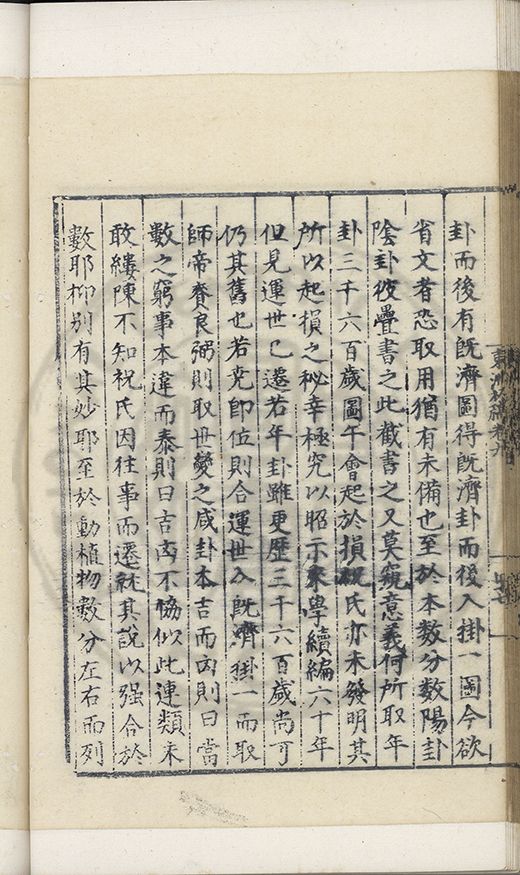 卦而後有既濟圖得既濟卦而後入掛一圖今欲
省文者恐取用猶有未備也至於本數分數陽卦
陰卦彼疊書之此截書之又莫窺意義何所取年
卦三千六百歲圖午會起於損祝氏亦未發明其
所以起損之秘幸極究以昭示來學續編六十年
但見運世已遷若年卦雖更歷三千六百歲尚可
仍其舊也若堯即位則合運世入既濟掛一而取
師帝賚良弼則取世變之咸卦本吉而凶則曰當
數之窮事本違而泰則曰吉凶不恊似此連類未
敢縷陳不知祝氏因往事而遷就其說以强合於
數耶抑別有其妙耶至於動植物數分左右而列